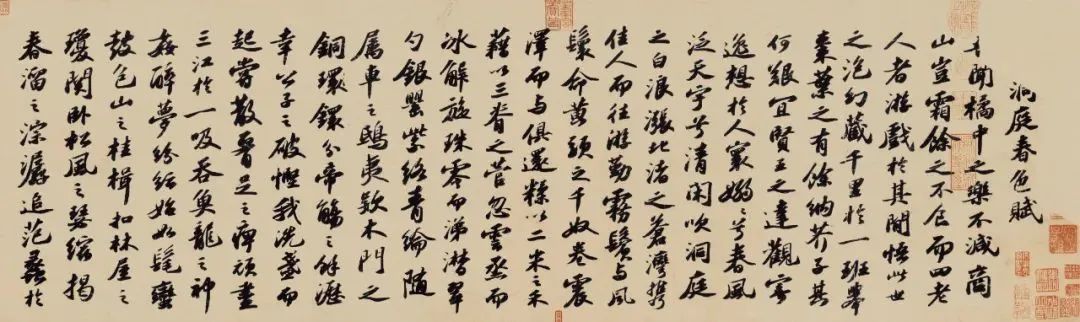 洞庭春色賦
聞橘中之樂不減商
山豈霜餘之不食而四老
人者游戲於其間悟此世
之泡幻藏千里於一班舉
棗葉之有餘納芥子其
何艱宜賢王之達觀寄
逸想於人寰嫋々兮春風
泛天宇兮清閑吹洞庭
之白浪漲北渚之蒼灣攜
佳人而往游勤霧鬢與風
鬟命黃頭之千奴卷震
澤而與俱還糅以二米之禾
藉以三脊之菅忽雲烝而
冰解旋珠零而涕潸翠
勺銀罌紫絡青綸隨
屬車之鴟夷欵木門之
銅環鐶分帝觴之餘瀝
幸公子之破慳我洗盞而
起嘗散腰足之痺頑盡
三江於一吸吞魚龍之神
姦醉夢紛紜始如髦蠻
鼓包山之桂楫扣林屋之
瓊關臥松風之瑟縮揭
春溜之淙潺追范蠡於